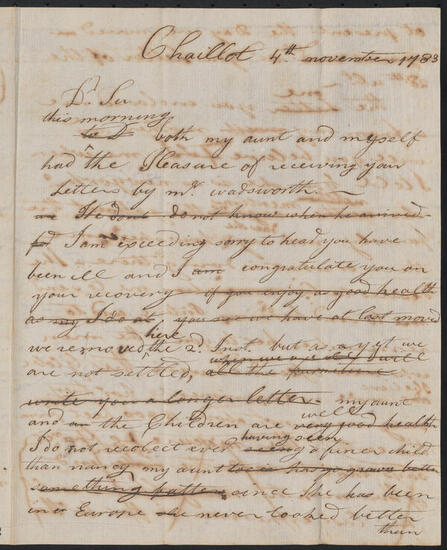 Chaillot 4th november 1783
Dr Sir
this morning
both my aunt and myself
had the Pleasure of receiving your
Letters by mr. wadsworth. —
We do not know when he arrived
I am exceeding sorry to hear you have
been ill and I am congratulate you on
your recovery if you enjoy as good health
as my I do at you we have at last moved
here
we removed the 2d. Inst. but as yet we
when we are I will
are not settled, all the furniture
write you a longer letter my aunt
well
and an the Children are very good health
having seen
I do not recolect ever seeing a finer child
than nancy my aunt has grown better
something fatter since She has been
in Europe she never looked better
than